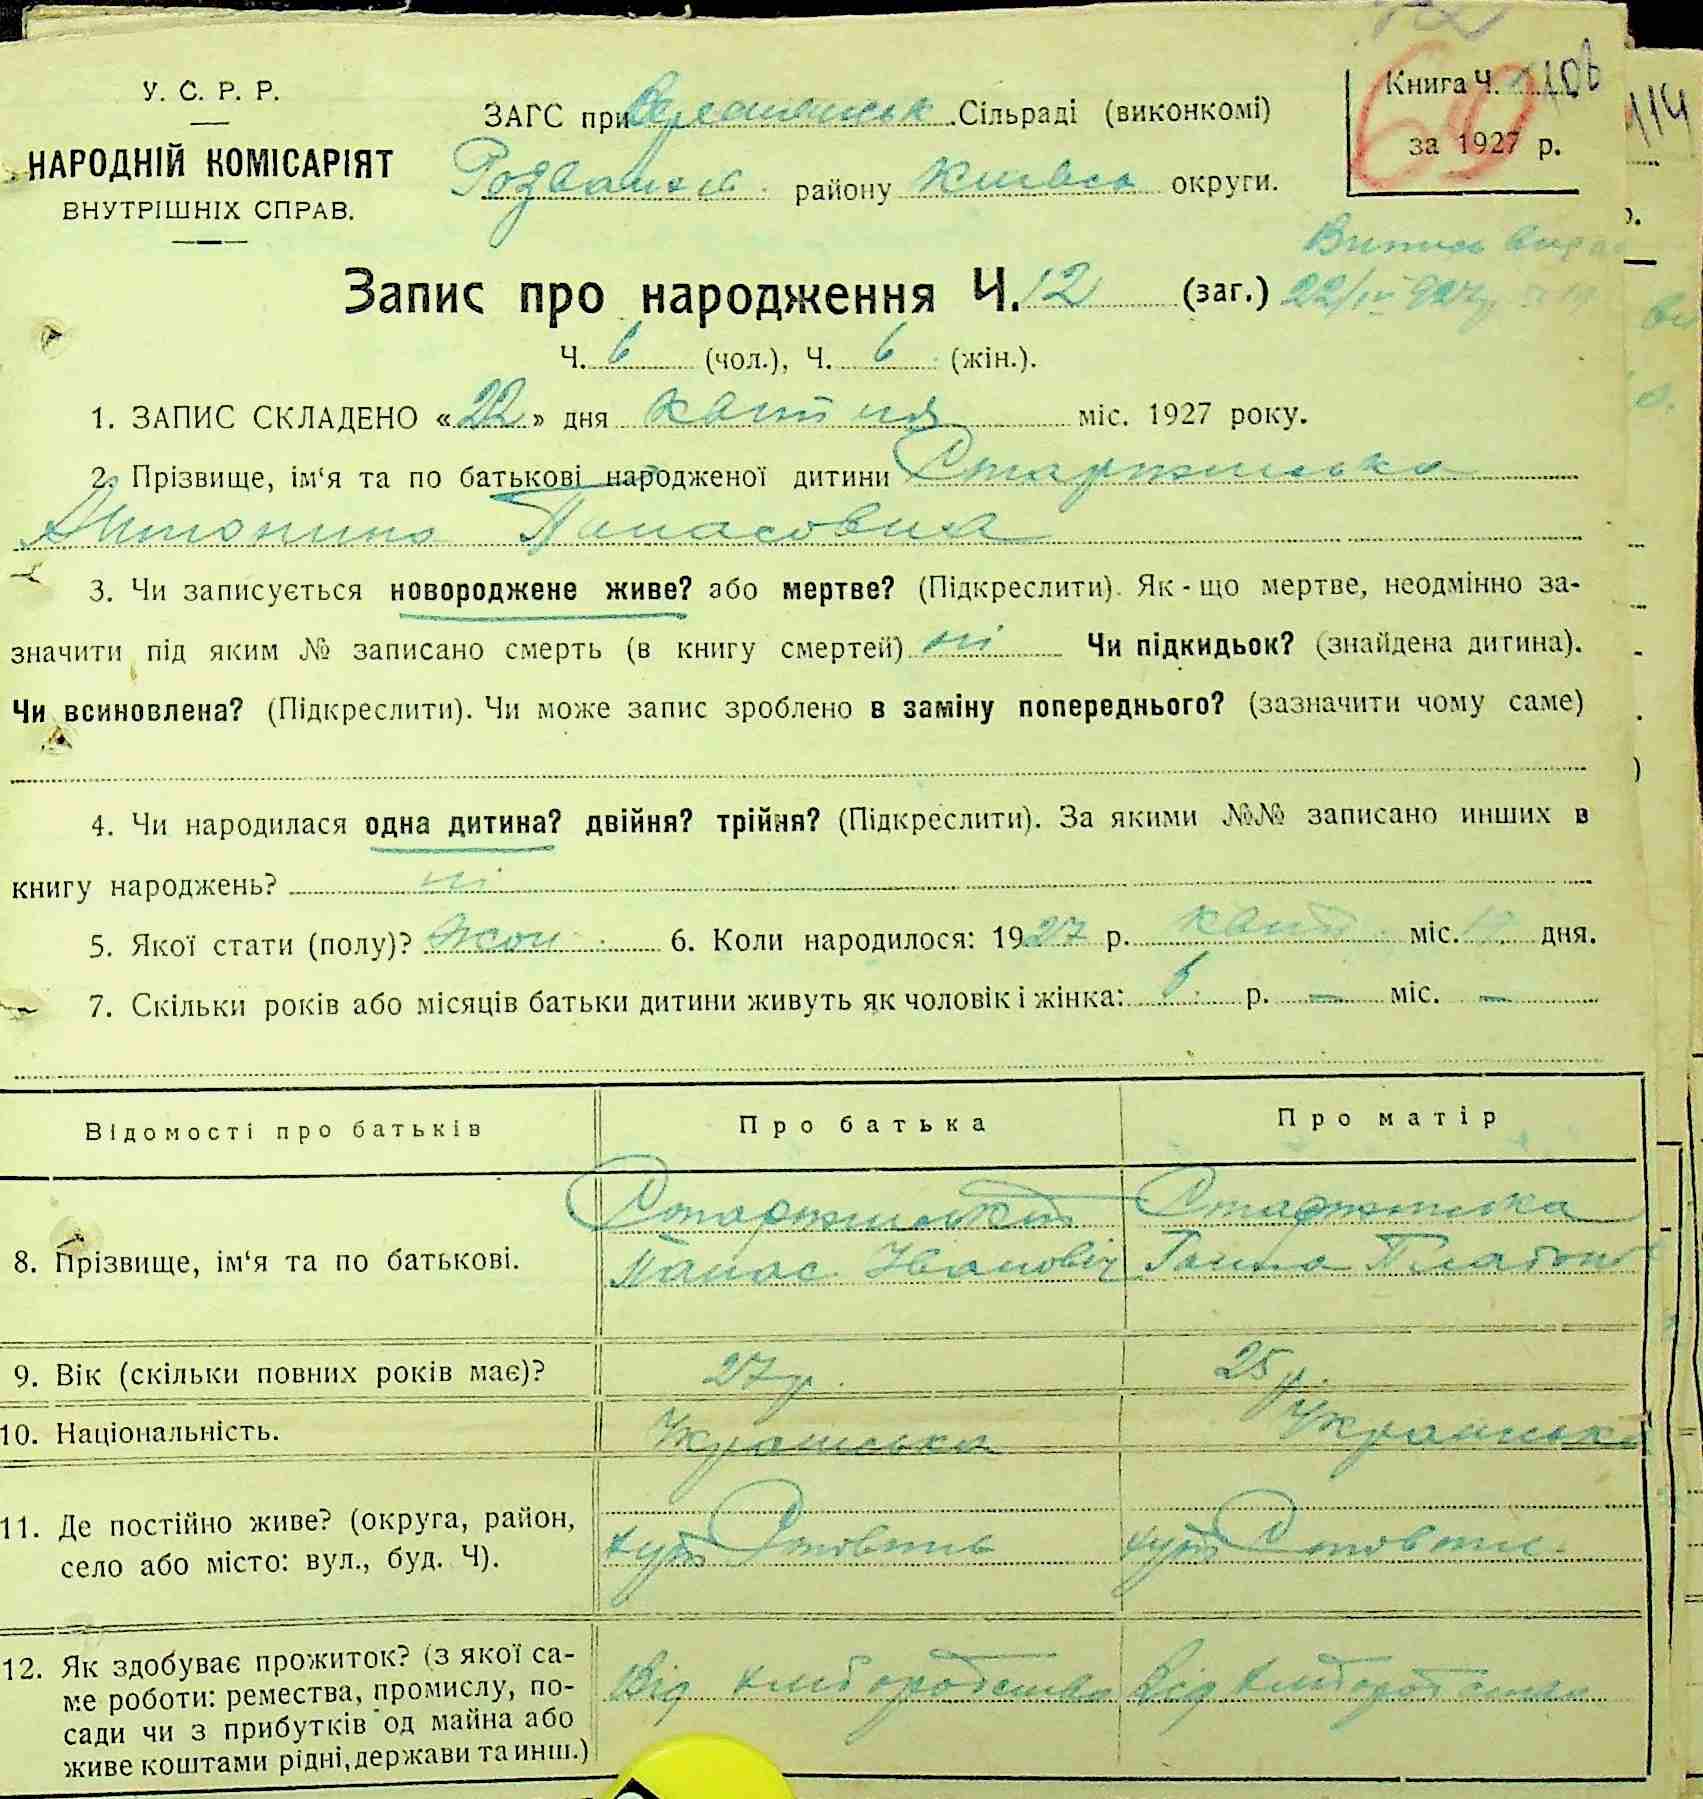 У. С. Р. Р.
НАРОДНІЙ КОМІСАРІЯТ
ВНУТРІШНІХ СПРАВ.
ЗАГС при Сільраді (виконкомі)
району Київсь округи.
Книга Ч. 106
за 1927 р.
60
114
Запис про народження Ч. 12 (заг.)
Ч. 6 (чол.), Ч. 6 (жін.).
1. ЗАПИС СКЛАДЕНО «22» дня квітня міс. 1927 року.
2. Прізвище, ім'я та по батькові народженої дитини
Антонина Панасовна
3. Чи записується новороджене живе? або мертве? (Підкреслити). Як-що мертве, неодмінно за-
значити під яким № записано смерть (в книгу смертей) ні Чи підкидьок? (знайдена дитина).
Чи всиновлена? (Підкреслити). Чи може запис зроблено в заміну попереднього? (зазначити чому саме)
4. Чи народилася одна дитина? двійня? трійня? (Підкреслити). За якими №№ записано инших в
книгу народжень? ні
5. Якої стати (полу)? жон. 6. Коли народилось: 1927 р. квіт. міс. дня.
7. Скільки років або місяців батьки дитини живуть як чоловік і жінка: р. — міс. —
Відомості про батьків Про батька Про матір
8. Прізвище, ім'я та по батькові.
Панас Іванович Ганна Платон
9. Вік (скільки повних років має)? 27 р. 25 р.
10. Національність. Українська Українська
11. Де постійно живе? (округа, район,
село або місто: вул., буд. Ч). хут хут
12. Як здобуває прожиток? (з якої са-
ме роботи: ремества, промислу, по-
сади чи з прибутків од майна або
живе коштами рідні, держави та инш.)
Від хліборобства Від хліборобства